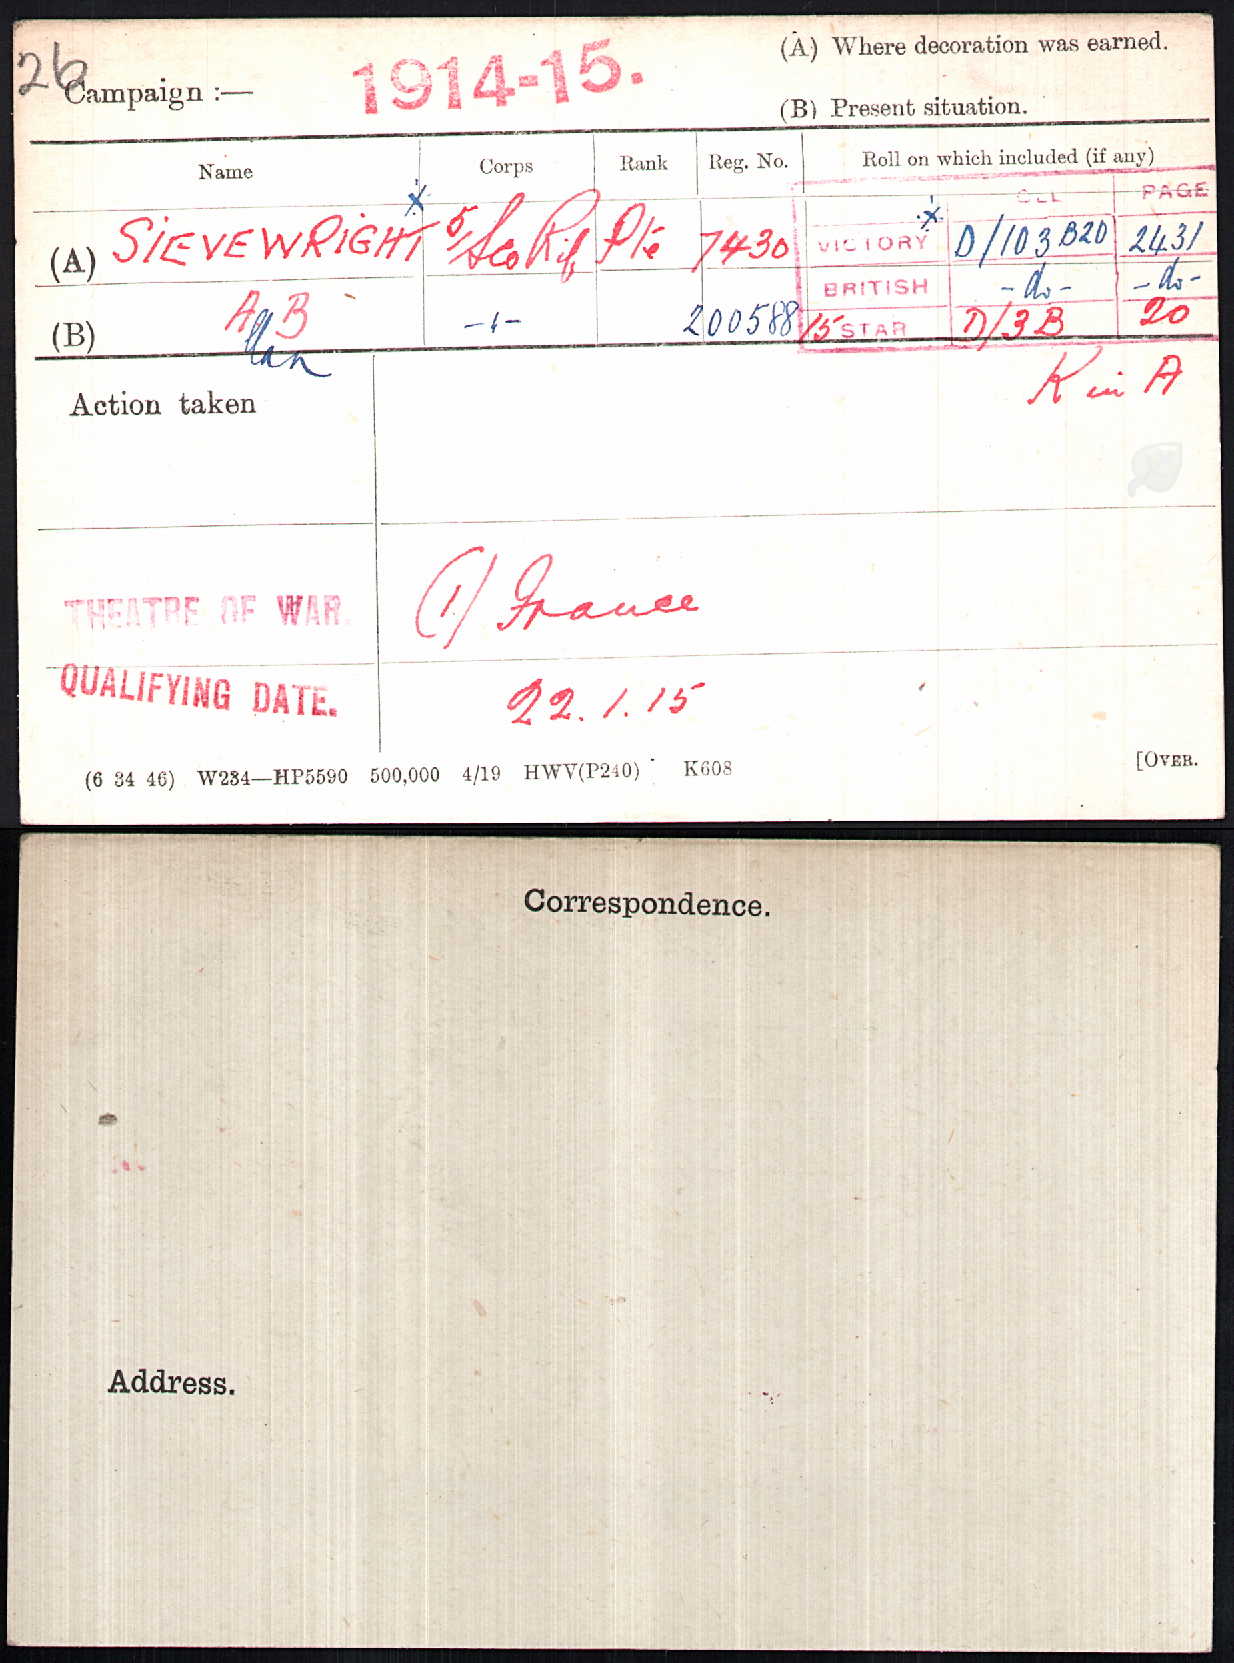 26
Campaign :— 1914-15. (A) Where decoration was earned.
(B) Present situation.
Name Corps Rank Reg. No. Roll on which included (if any)
PAGE
(A) SIEVEWRIGHT x 5/Sco Rif Pte 7430 VICTORY x D/103 B20 2431
BRITISH -do- -do-
(B) A B -"- 200588 15 STAR D/3B 20
Allan
Action taken K in A
THEATRE OF WAR. (1) France
QUALIFYING DATE. 22.1.15
(6 34 46) W234—HP5590 500,000 4/19 HWV(P240) K608 [OVER.
Correspondence.
Address.